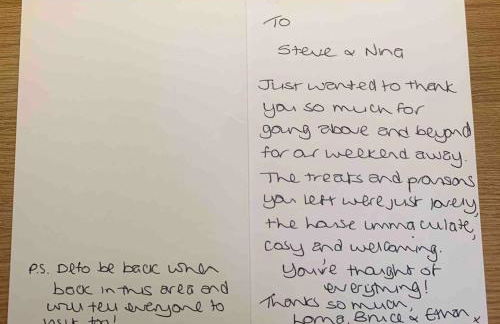 To
Steve & Nina
Just wanted to thank
you so much for
going above and beyond
for our weekend away.
The treats and provisions
you left were just lovely,
the house immaculate,
cosy and welcoming.
You've thought of
everything!
Thanks so much,
Bruce & Ethan x
P.S. Def to be back when
back in this area and
will tell everyone to
visit too!